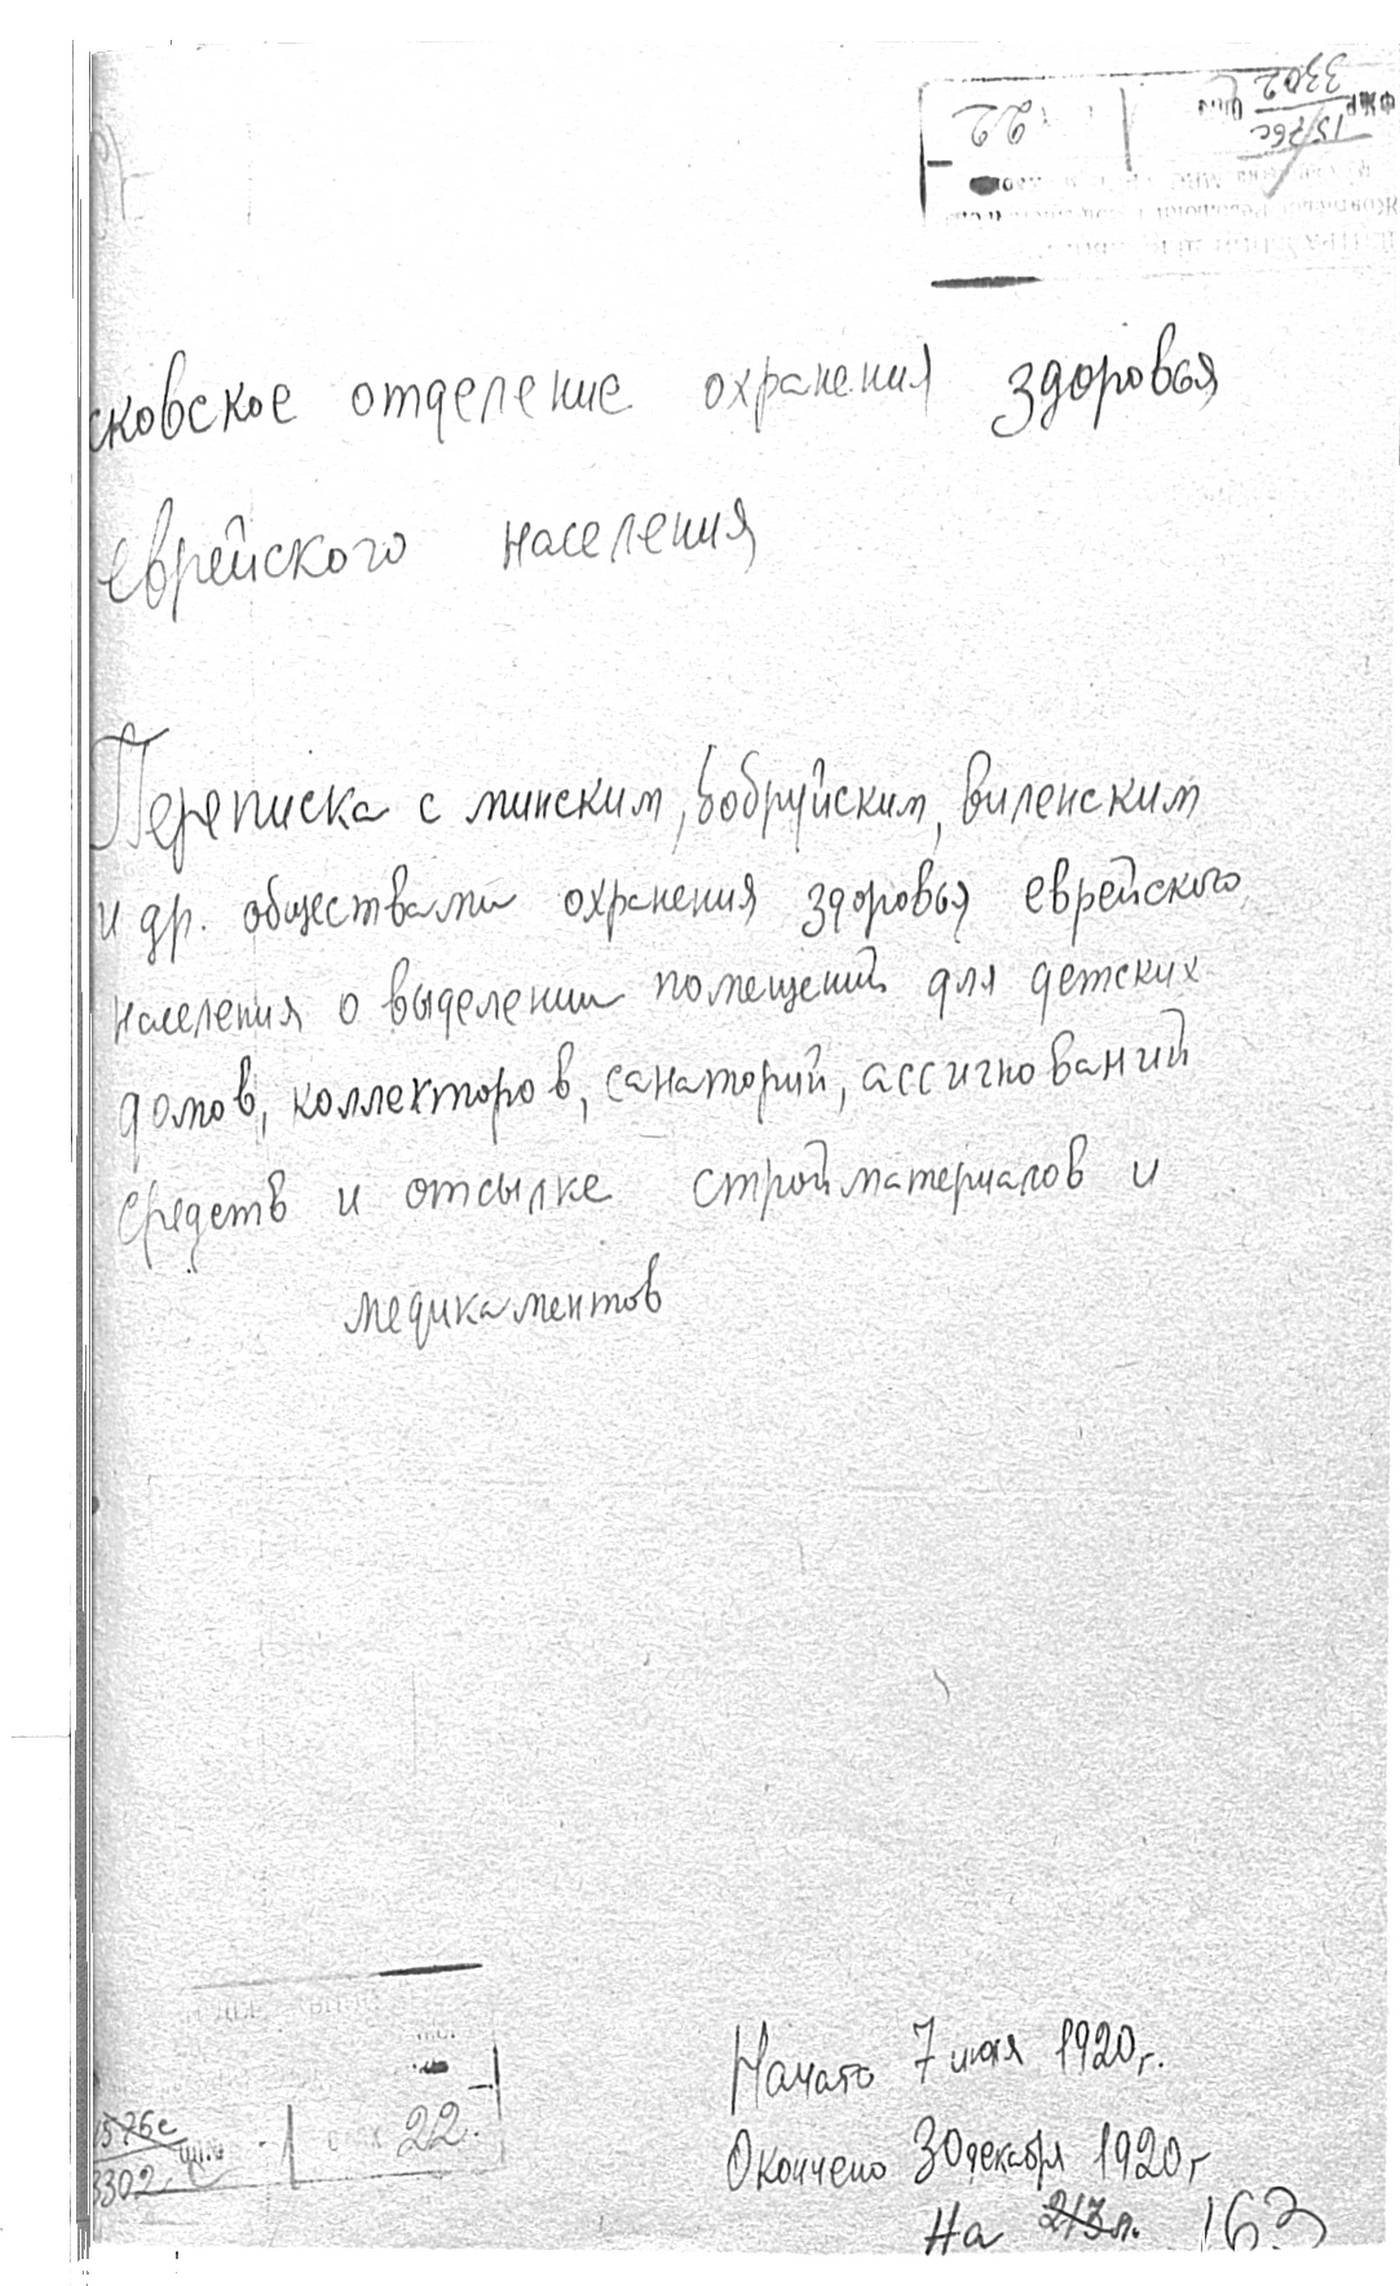 3302
1576с
22
сковское отделение охранения здоровья
еврейского населения
Переписка с минским, бобруйским, виленским
и др. обществами охранения здоровья еврейского
населения о выделении помещений для детских
домов, коллекторов, санаторий, ассигнований
средств и отсылке стройматериалов и
медикаментов
Начато 7 июля 1920г.
1576с
22.
3302
Окончено 30 декабря 1920г
На 213 л. 163